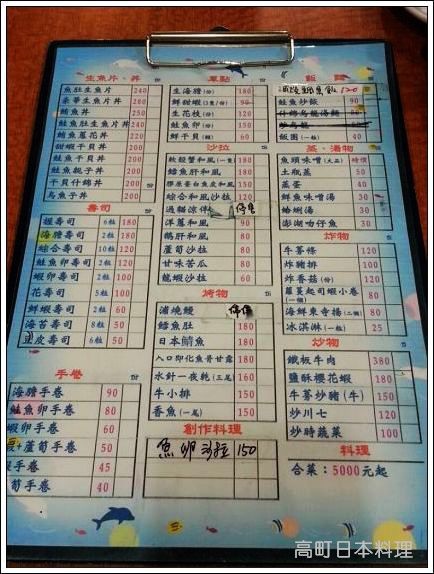 生魚片、丼
魚肚生魚片 240
豪華生魚片丼 260
鮪魚丼 250
魚肚生魚片丼 240
鮪魚蔥花丼 240
甜蝦干貝丼
鮭魚干貝丼
鮭魚親子丼
干貝什錦丼
烏魚子丼
壽司
握壽司 6粒 180
海膽壽司 2粒 180
綜合壽司 10粒 120
鮭魚卵壽司 2粒 120
蝦卵壽司 2粒 100
花壽司 5粒 100
鮮蝦壽司 2粒 60
海苔壽司 8粒 50
豆皮壽司 6粒 50
手卷
海膽手卷 90
鮭魚卵手卷 80
蝦卵手卷 60
蝦+蘆筍手卷 50
蝦手卷 45
筍手卷 40
單點
生海膽(份) 180
鮮甜蝦(3隻/份) 90
生花枝(份) 120
鮭魚卵(份) 150
鮮干貝(份) 180
沙拉
軟殼蟹和風(一隻) 180
鱈魚肝和風 180
膠原蛋白魚皮和風 150
綜合和風沙拉 150
過貓涼伴 停售
洋蔥和風 90
鵝肝和風 180
蘆筍沙拉 80
甘味苦瓜 80
龍蝦沙拉 60
烤物
浦燒鰻 停售
鱈魚肚 180
日本鯖魚 180
入口即化魚骨甘露 180
水針一夜乾(三尾) 160
牛小排 150
香魚(一尾) 150
創作料理
魚卵沙拉 150
飯、麵
120
鮭魚炒飯 90
什錦烏龍湯麵
飯團(一粒) 40
蒸、湯物
魚頭味噌(大品) 時價
土瓶蒸 50
蒸蛋 40
鮮魚味噌湯 30
蛤蜊湯 30
澎湖吻仔魚 50
炸物
牛蒡條 120
炸豬排 100
炸香菇(份) 100
蘿蔓起司蝦小卷(一個) 80
海鮮東會揚(二個) 80
冰淇淋(一粒) 25
炒物
鐵板牛肉 380
鹽酥櫻花蝦 180
牛蒡炒豬(牛) 150
炒川七 120
炒時蔬菜 100
料理
合菜：5000元起
高町日本料理